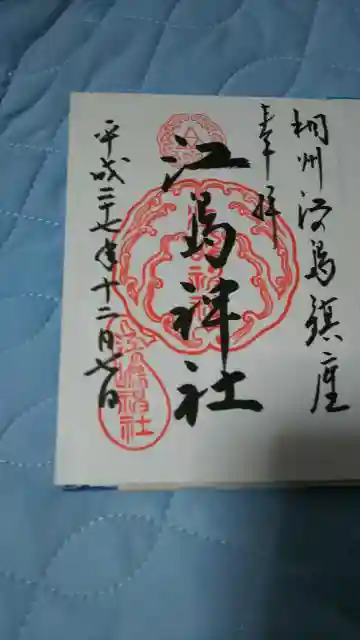 相州江島鎮座
奉拝
江島神社
平成二十七年十二月七日
江島神社